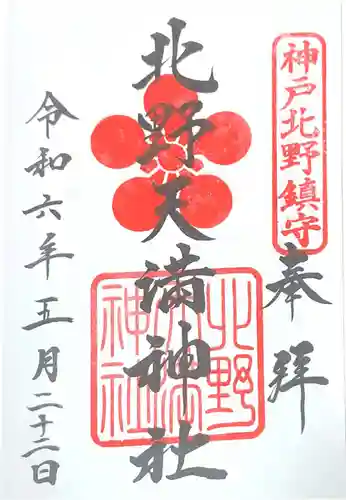 神戸北野鎮守
奉拝
北野天満神社
北野天満神社
令和六年五月二十二日